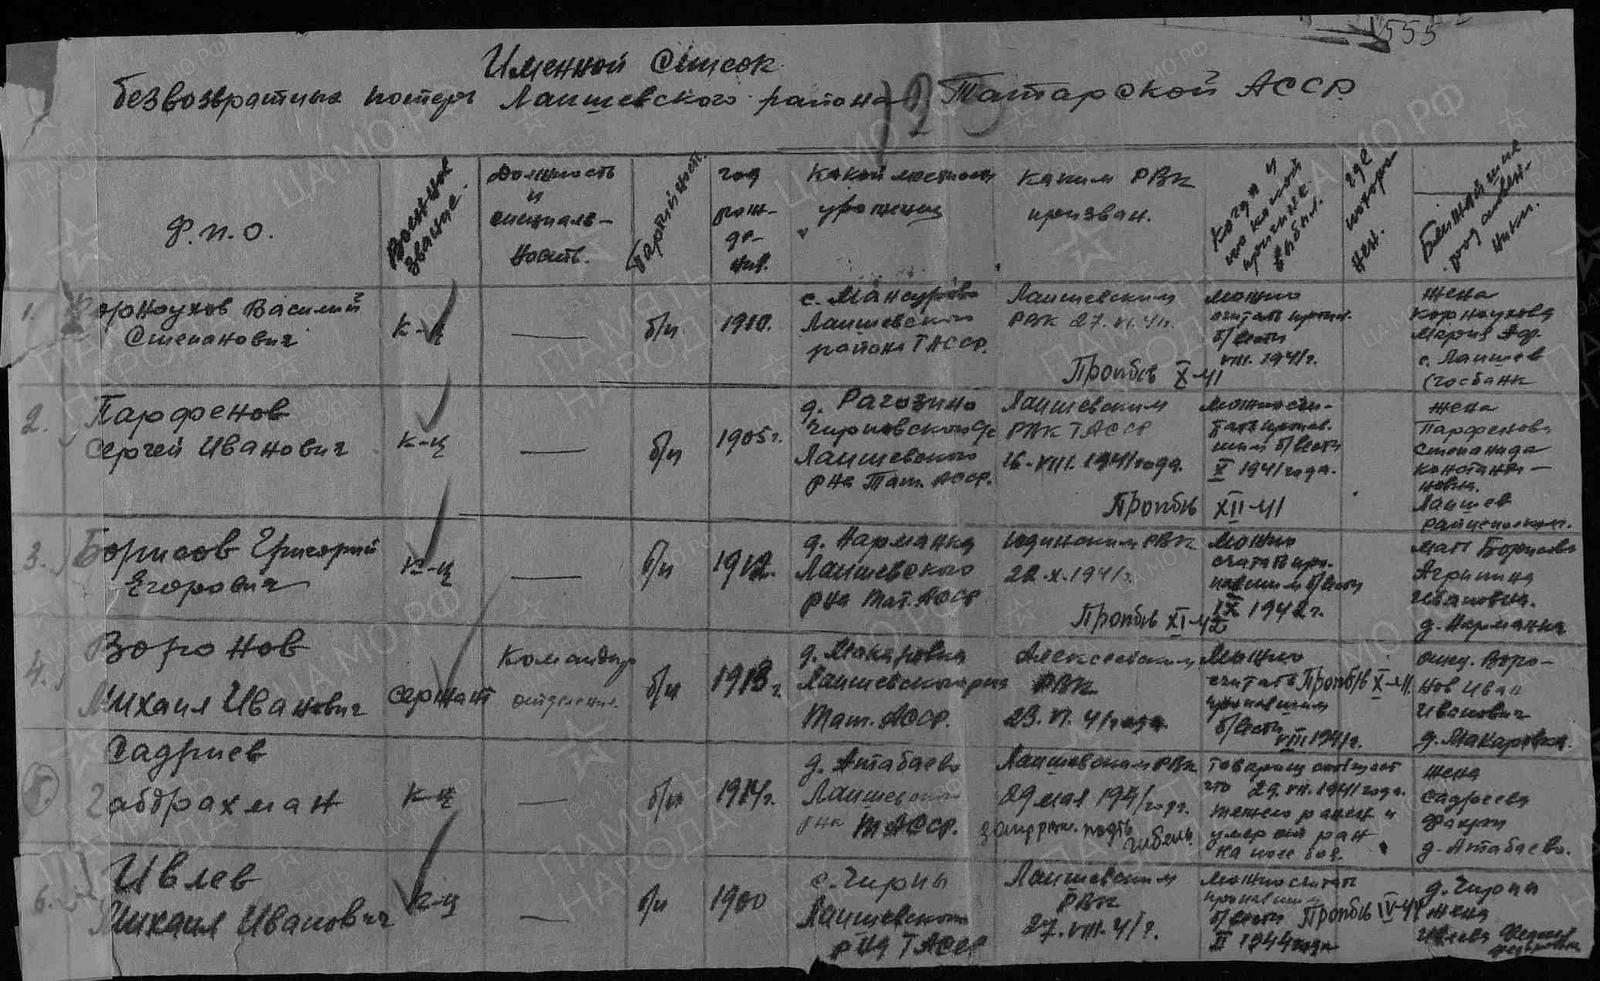 1555
Именной Список
безвозвратных потерь Лаишевского района Татарской АССР.
Ф.И.О.
Военное звание.
Должность и специальность.
Партийность.
год рождения.
какой местности уроженец
каким РВК призван.
когда и по какой причине выбыл.
где похоронен.
Ближайшие родственники.
1. Корноухов Василий Степанович
к-ц
—
б/п
1910.
с. Мансурово
Лаишевского
района ТАССР.
Лаишевским
РВК 27.VI.41г.
Пропб/в X-41
можно
считать пропав.
б/вести
VIII.1941г.
жена
Корноухова
Мария
с. Лаишев
(госбанк
2. Парфенов
Сергей Иванович
к-ц
—
б/п
1905г.
д. Рагозино
Лаишевского
р-на Тат. АССР.
Лаишевским
РВК ТАССР
16-VIII.1941 года.
Пропб/в XII-41
можно счи-
тать пропав-
шим б/вести
X 1941 года.
жена
Парфенова
Степанида
Константи-
новна.
Лаишев
райисполком.
3. Борисов Григорий
Егорович
к-ц
—
б/п
1912.
д. Нармонка
Лаишевского
р-на Тат. АССР
РВК
22.X.1941г.
Пропб/в XI-42
можно
считать про-
павшим б/вести
IX 1942г.
мать Борисова
Агрипина
Ивановна.
д. Нармонка
4. Воронов
Михаил Иванович
сержант
Командир
отделения.
б/п
1918г.
д. Макаровка
Лаишевского р-на
Тат. АССР.
Алексеевским
РВК
23.VI.41 года
можно
считать
пропавшим
б/вести
VIII 1941г.
Пропб/в X-41.
отец Воро-
нов Иван
Иванович
д. Макаровка.
5. Садриев
Габдрахман
к-ц
—
б/п
1914г.
д. Атабаево
Лаишевского
р-на ТАССР.
Лаишевским РВК
29 мая 1941 годг.
гибель.
товарищ сообщает
что 29.VII.1941 года.
тяжело ранен и
умер от ран
на поле боя.
жена
Садриева
д. Атабаево.
6. Ивлев
Михаил Иванович
к-ц
—
б/п
1900
с. Чирпы
Лаишевского
р-на ТАССР
Лаишевским
РВК
27.VIII.41г.
можно считать
пропавшим
б/вести
II 1944 года
Пропб/в IV-44
д. Чирпы
жена
Ивлева
ПАМЯТЬ НАРОДА
ЦАМО РФ